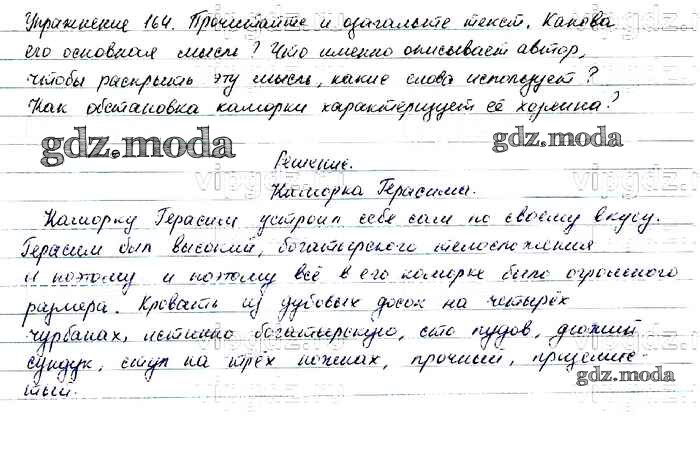 Упражнение 164. Прочитайте и озаглавьте текст. Какова
его основная мысль? Что именно описывает автор,
чтобы раскрыть эту мысль, какие слова использует?
Как обстановка каморки характеризует её хозяина?
gdz.moda
gdz.moda
Решение.
Каморка Герасима.
Каморку Герасим устроил себе сам по своему вкусу.
Герасим был высокий, богатырского телосложения
и поэтому и поэтому всё в его каморке было огромного
размера. Кровать из дубовых досок на четырёх
чурбанах, истинно богатырскую, сто пудов, дюжий
сундук, стул на трёх ножках, прочный, приземис-
тый.
gdz.moda